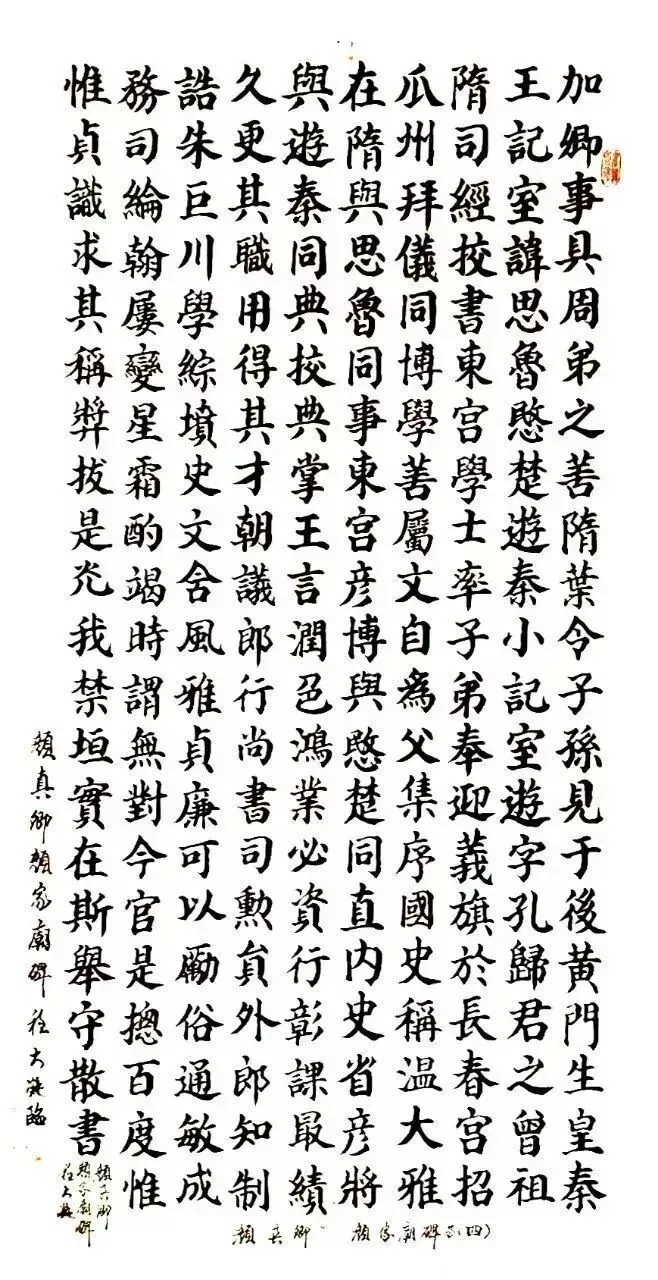 加卿事具周弟之善隋葉令子孫見于後黄門生皇秦
王記室諱思魯愍楚遊秦小記室遊字孔歸君之曾祖
隋司經挍書東宫學士率子弟奉迎義旗於長春宫招
瓜州拜儀同博學善屬文自為父集序國史稱温大雅
在隋與思魯同事東宫彦博與愍楚同直内史省彦將
與遊秦同典挍典掌王言潤色鴻業必資行彰課最績
久更其職用得其才朝議郎行尚書司勲貟外郎知制
誥朱巨川學綜墳史文含風雅貞廉可以勵俗通敏成
務司綸翰屢變星霜酌竭時謂無對今官是摠百度惟
惟貞識求其稱弉拔是宂我禁垣實在斯舉守散書
顔真卿顔家廟碑程大凝臨
顔真卿
顔家廟碑
顔真卿 顔家廟碑
(四)